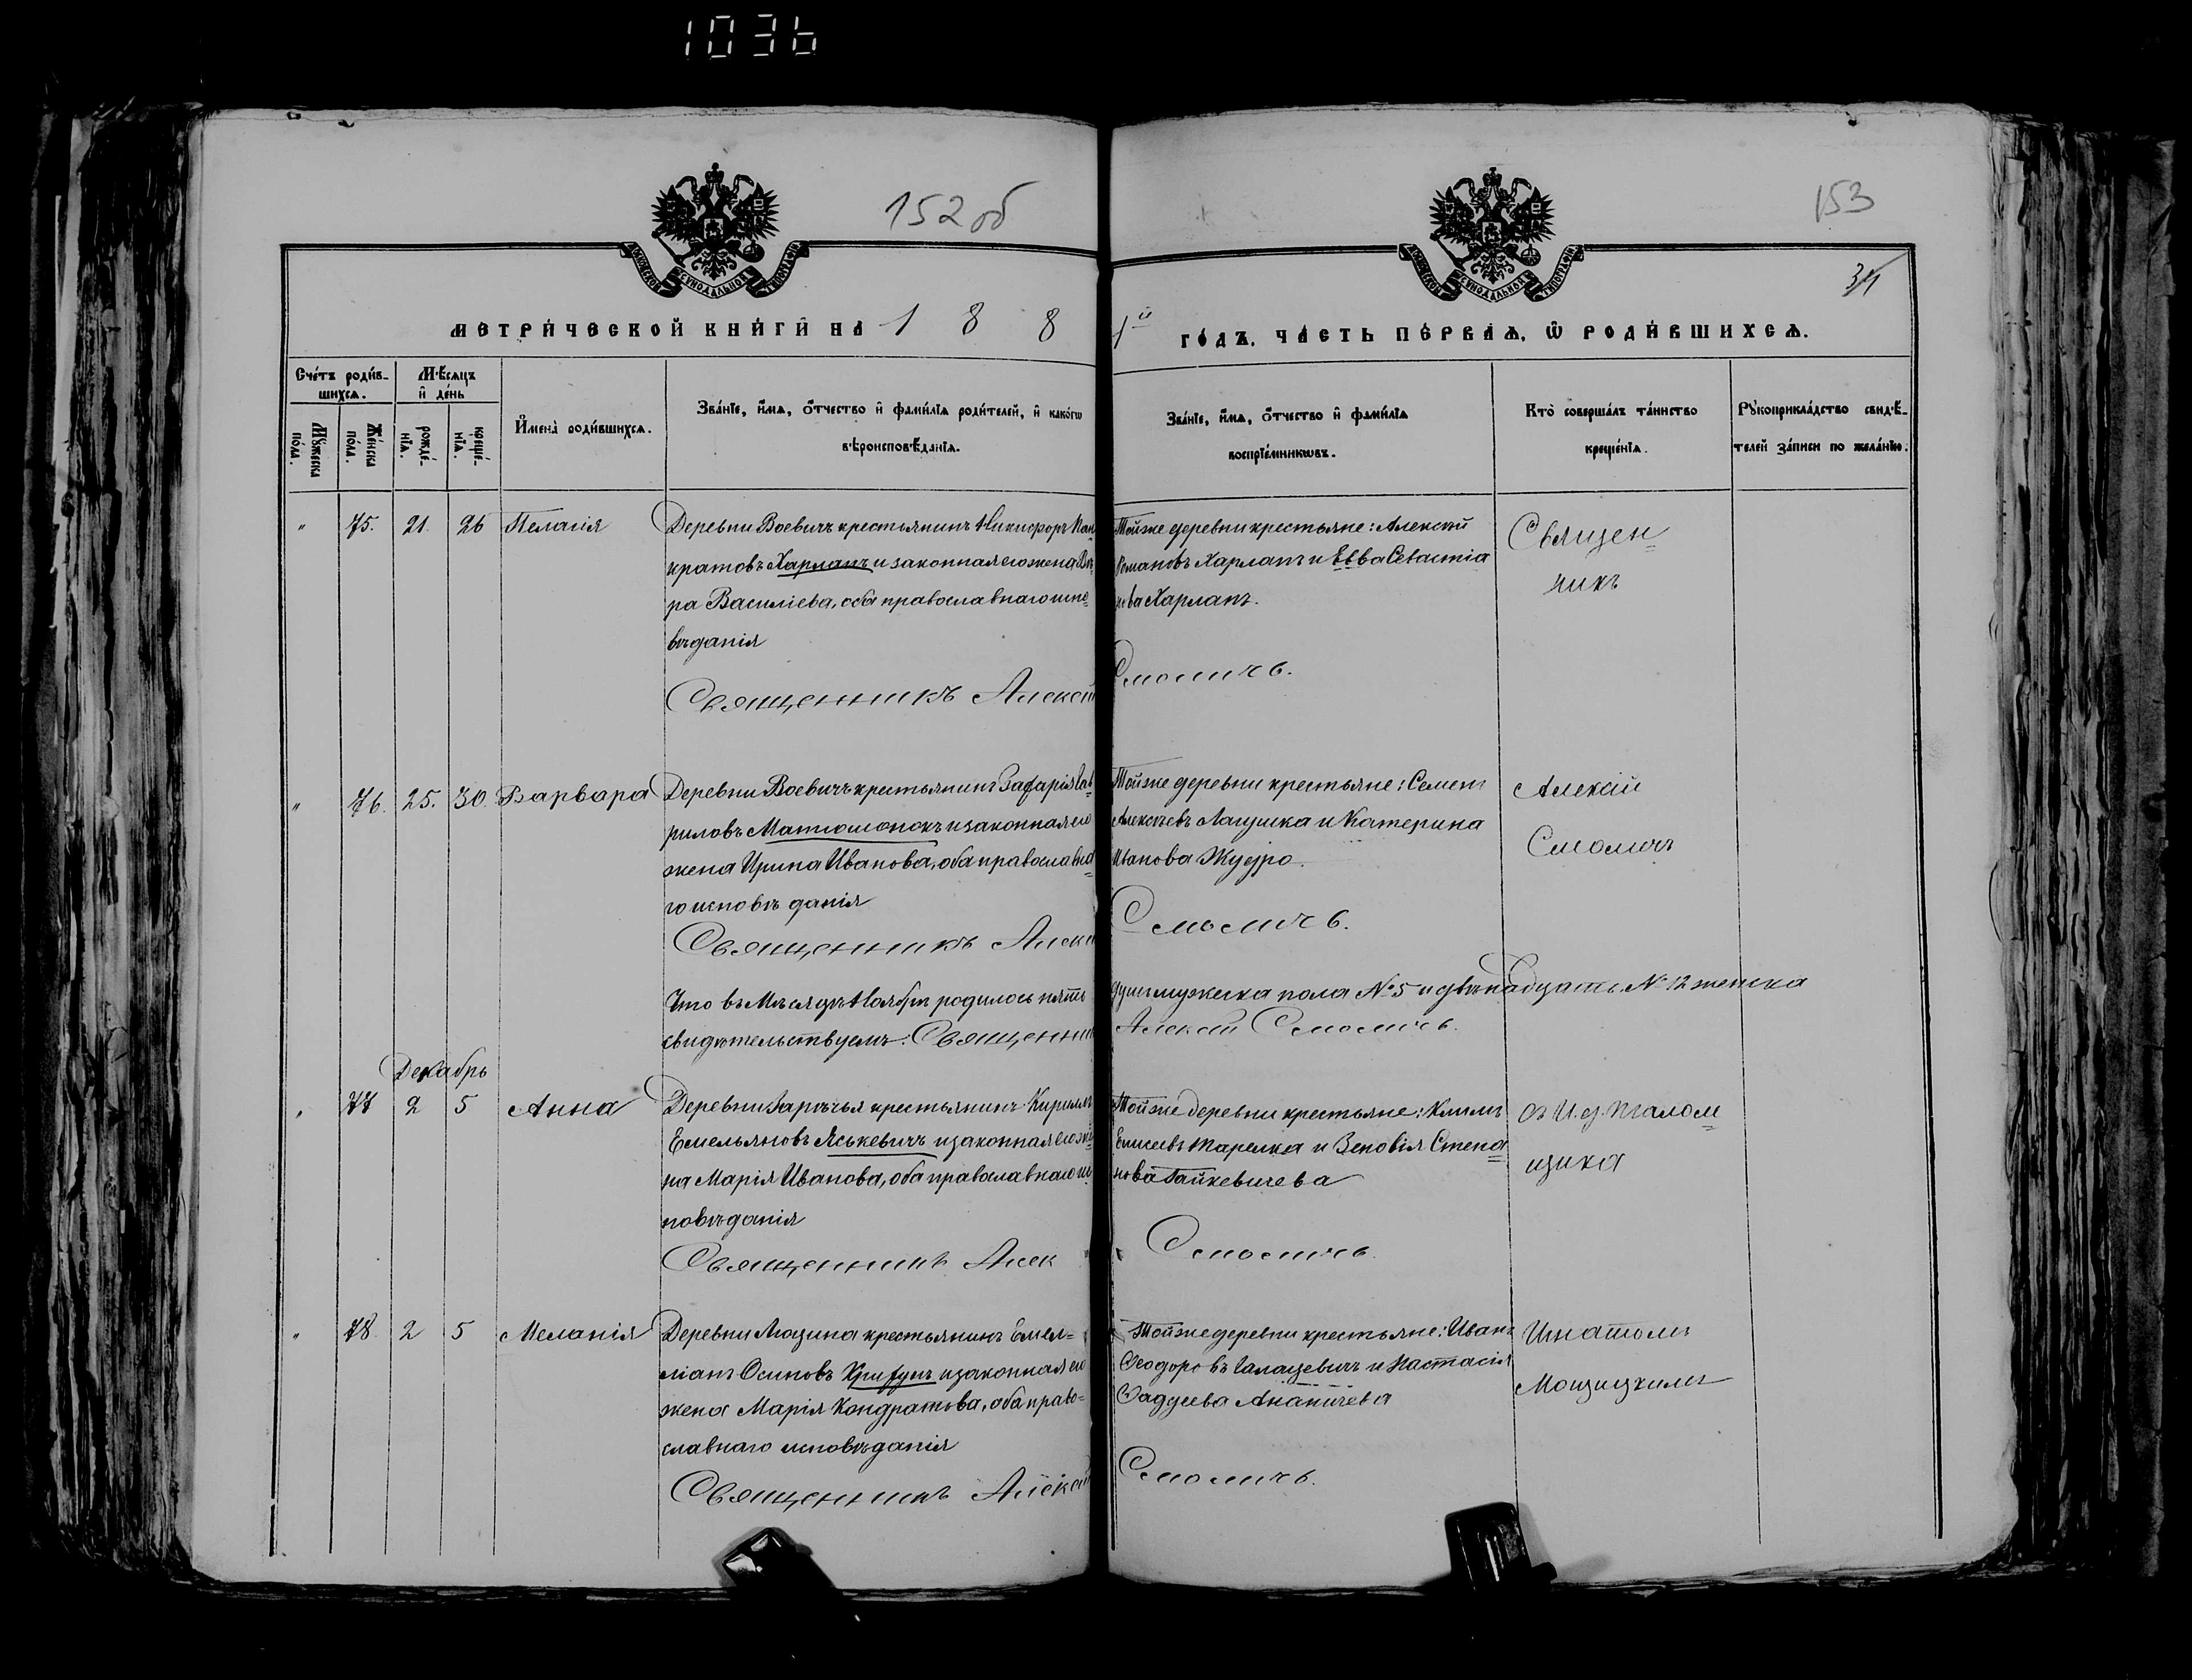 1036
152 об
153
31
МЕТРИЧЕСКОЙ КНИГИ НА 188
1й ГОДЪ. ЧАСТЬ ПЕРВАЯ, Ѡ РОДИВШИХСЯ.
Счетъ родив-
шихся.
Мѣсяцъ
и день
Мужеска
пола.
Женска
пола.
рожде-
нія.
креще-
нія.
Имена родившихся.
Званіе, имя, отчество и фамилія родителей, и какогѡ
вѣроисповѣданія.
Званіе, имя, отчество и фамилія
воспріемникѡвъ.
Кто совершалъ таинство
крещенія.
Рукоприкладство свидѣ-
телей записи по желанію.
" 75. 21. 26 Пелагія
Деревни Воевичъ крестьянинъ Никифоръ Пан-
кратовъ Харлапъ и законная его жена Ва-
ра Василіева, оба православнаго испо-
вѣданія
Священникъ Алексѣй
Тойже деревни крестьяне: Алексѣй
Романовъ Харлапъ и Евва Севастіа
нова Харлапъ.
Смоличъ.
Священ=
никъ
" 76. 25. 30. Варвара
Деревни Воевичъ крестьянинъ Захарія Гав-
риловъ Матюшонокъ и законная его
жена Ирина Иванова, оба православна-
го исповѣданія
Священникъ Алекс
Тойже деревни крестьяне: Семенъ
Алексѣевъ Лагушка и Катерина
Иванова Жудро.
Смоличъ.
Алексій
Смоличъ
Что въ Мѣсяцѣ Ноябрѣ родилось пять душъ мужеска пола №5 и двѣнадцать №12 женска
свидѣтельствуемъ: Священни Алексѣй Смоличъ.
Декабрь
" 77 2 5 Анна
Деревни Зарѣчья крестьянинъ Кириллъ
Емельяновъ Яськевичъ и законная его же-
на Марія Иванова, оба православнаго ис-
повѣданія
Священникъ Алек
Тойже деревни крестьяне: Климъ
Елисеевъ Тарелка и Зеновія Степа=
нова Гайкевичева
Смоличъ.
съ И. д. псалом=
щика
" 78. 2 5 Меланія
Деревни крестьянинъ Емел=
ліанъ Осиповъ и законная его
жена Марія Кондратова, оба право=
славнаго исповѣданія
Священникъ Алексѣй
Тойже деревни крестьяне: Иванъ
Ѳеодоровъ и Настасія
Ѳаддеева Ананичева
Смоличъ.
Игнатомъ